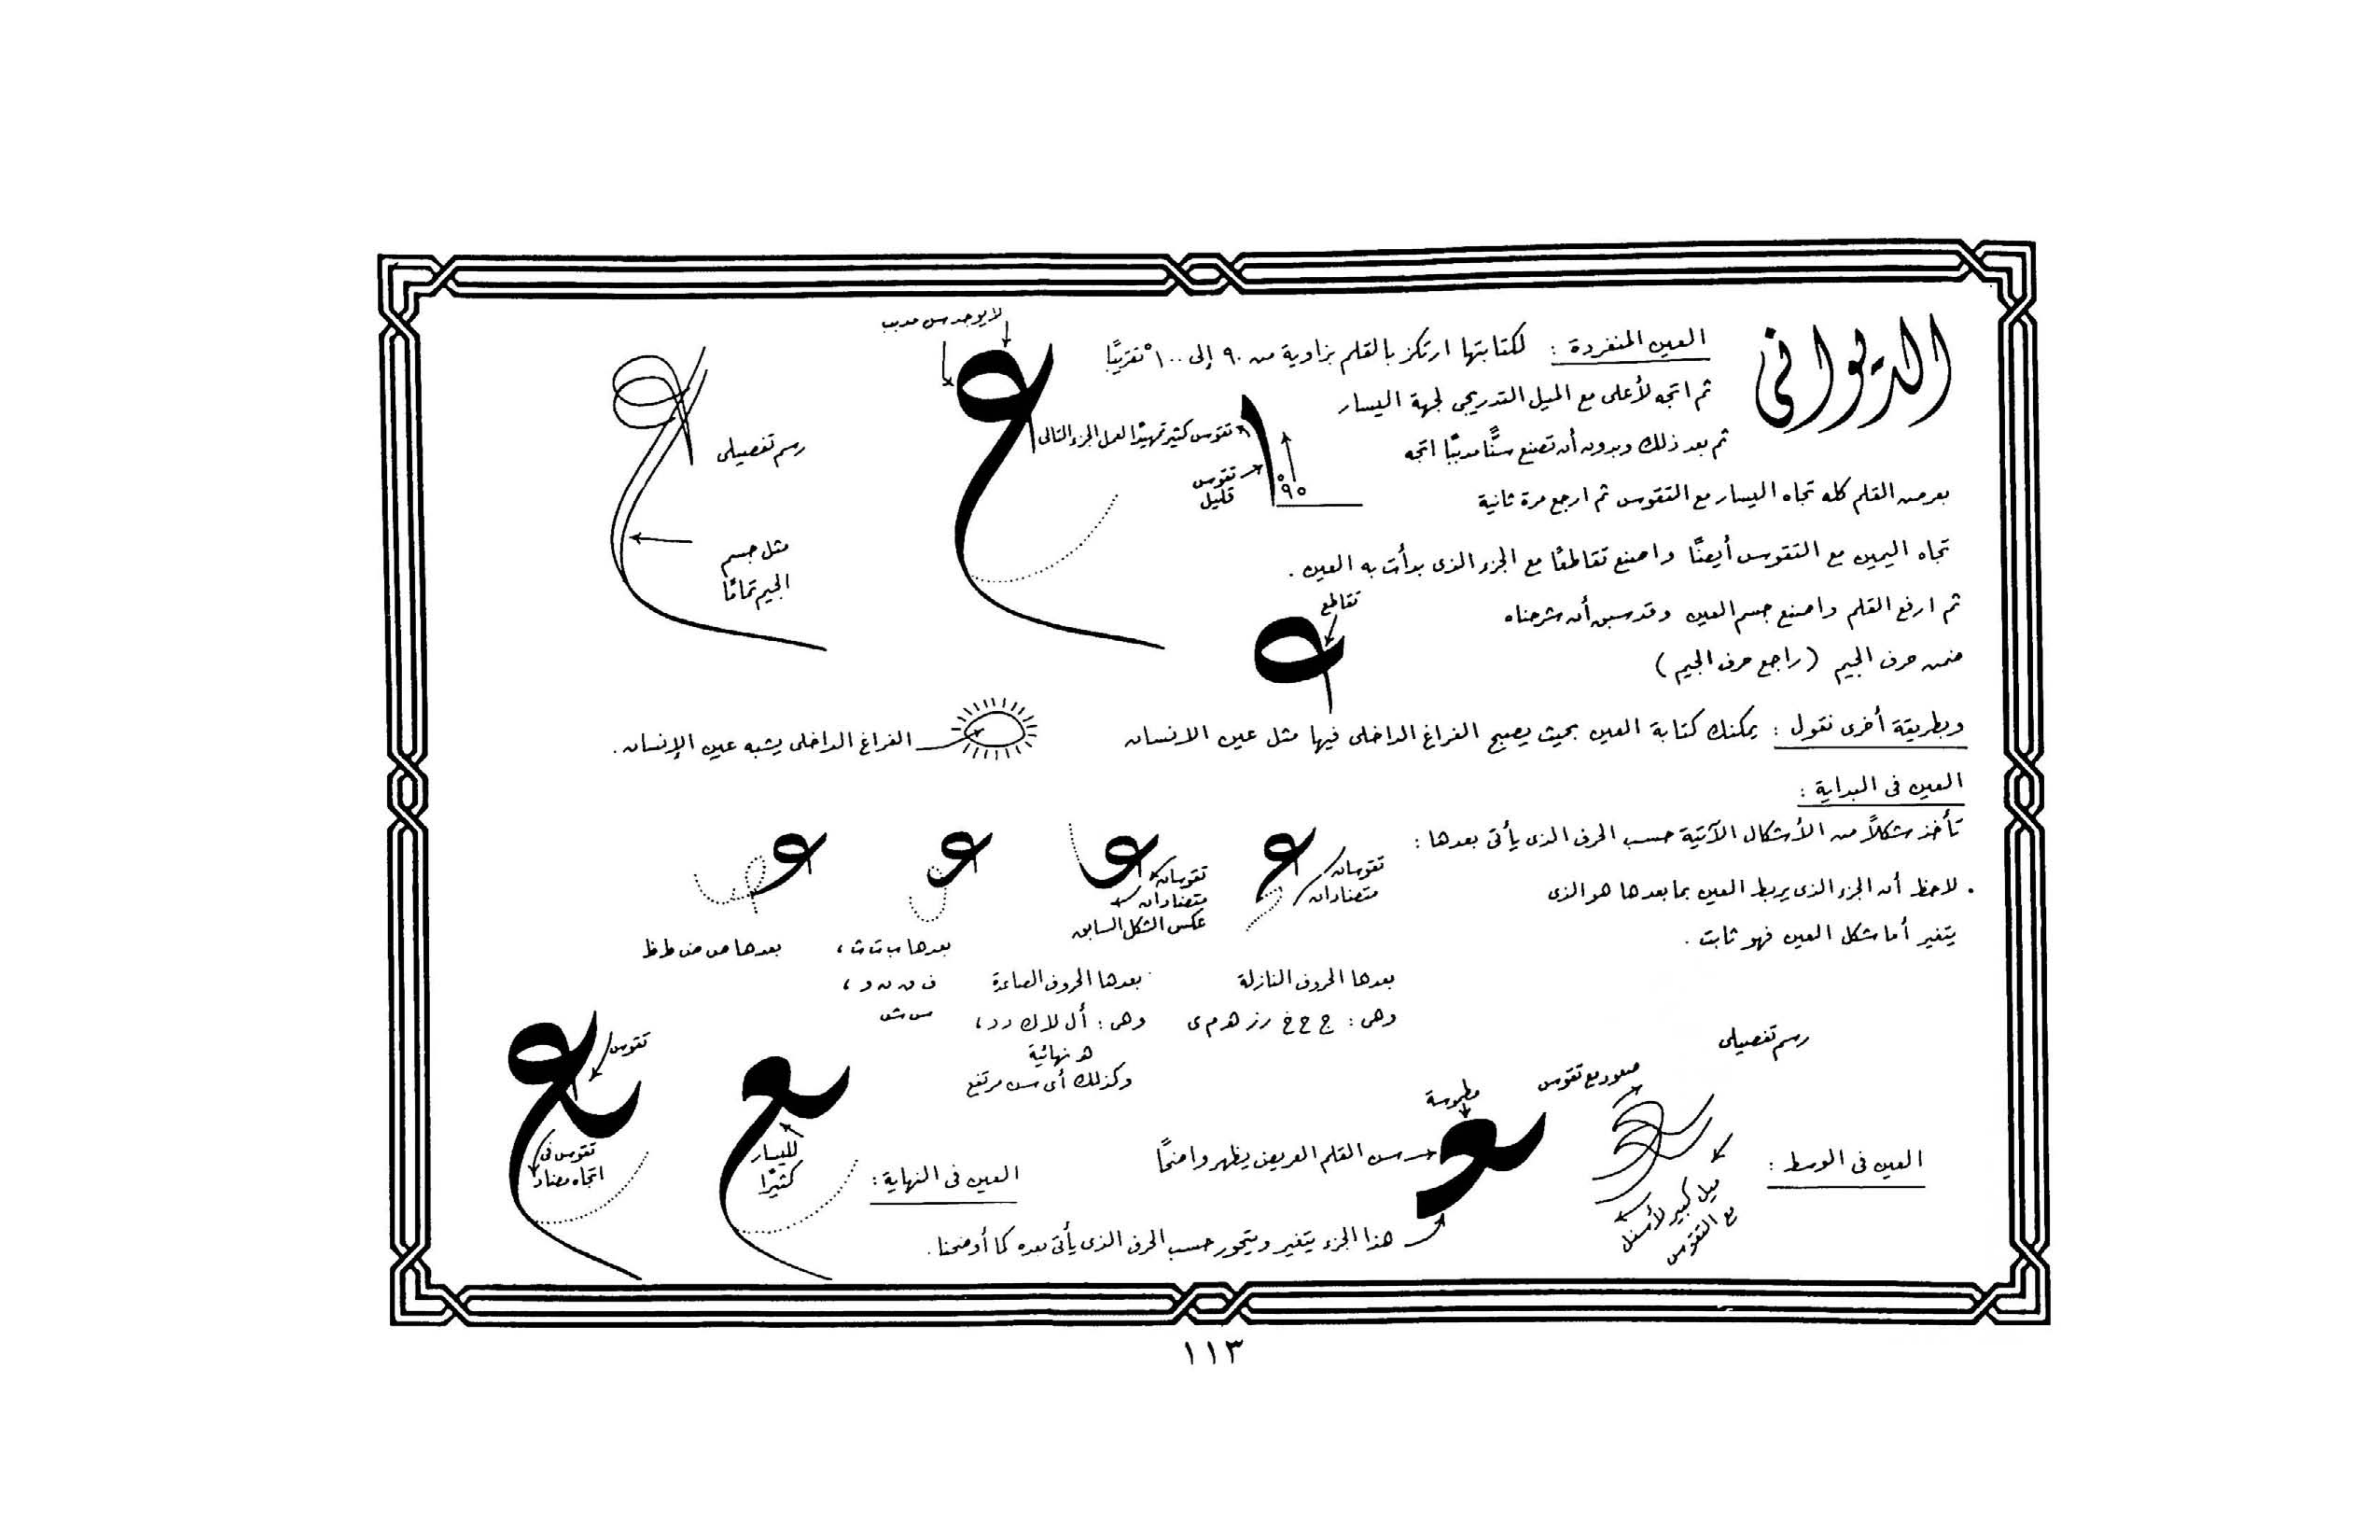 الديوانى
العين المنفردة : لكتابتها ارتكز بالقلم بزاوية من ٩٠ إلى ١٠٠° تقريبًا
ثم اتجه لأعلى مع الميل التدريجى لجهة اليسار
ثم بعد ذلك وبدون أن تصنع سنًّا مدببًا اتجه
بعرض القلم كله تجاه اليسار مع التقوس ثم ارجع مرة ثانية
تجاه اليمين مع التقوس أيضًا واصنع تقاطعًا مع الجزء الذى بدأت به العين .
ثم ارفع القلم واصنع جسم العين وقد سبق أن شرحناه
ضمن حرف الجيم (راجع حرف الجيم)
لا يوجد سن مدبب
تقوس كثير تمهيدًا لعمل الجزء التالى
تقوس
قليل
٩٠°
رسم تفصيلى
مثل جسم
الجيم تمامًا
تقاطع
وبطريقة أخرى نقول : يمكنك كتابة العين بحيث يصبح الفراغ الداخلى فيها مثل عين الانسان
الفراغ الداخلى يشبه عين الإنسان .
العين فى البداية :
تأخذ شكلاً من الأشكال الآتية حسب الحرف الذى يأتى بعدها :
. لاحظ أن الجزء الذى يربط العين بما بعدها هو الذى
يتغير أما شكل العين فهو ثابت .
تقوسان
متضادان
تقوسان
متضادان
عكس الشكل السابق
بعدها الحروف النازلة
وهى : ج ح خ ر ز هـ م ى
بعدها الحروف الصاعدة
وهى : أ ل لا ك د د ،
هـ نهائية
وكذلك أى سن مرتفع
بعدها ب ت ث ،
ف ق ن و ،
س ش
بعدها ص ض ط ظ
العين فى الوسط :
رسم تفصيلى
صعود مع تقوس
ميل كبير لأسفل
مع التقوس
مطموسة
سن القلم العريض يظهر واضحًا
هذا الجزء يتغير ويتحور حسب الحرف الذى يأتى بعده كما أوضحنا .
العين فى النهاية :
لليسار
كثيرًا
تقوس
تقوس فى
اتجاه مضاد
١١٣